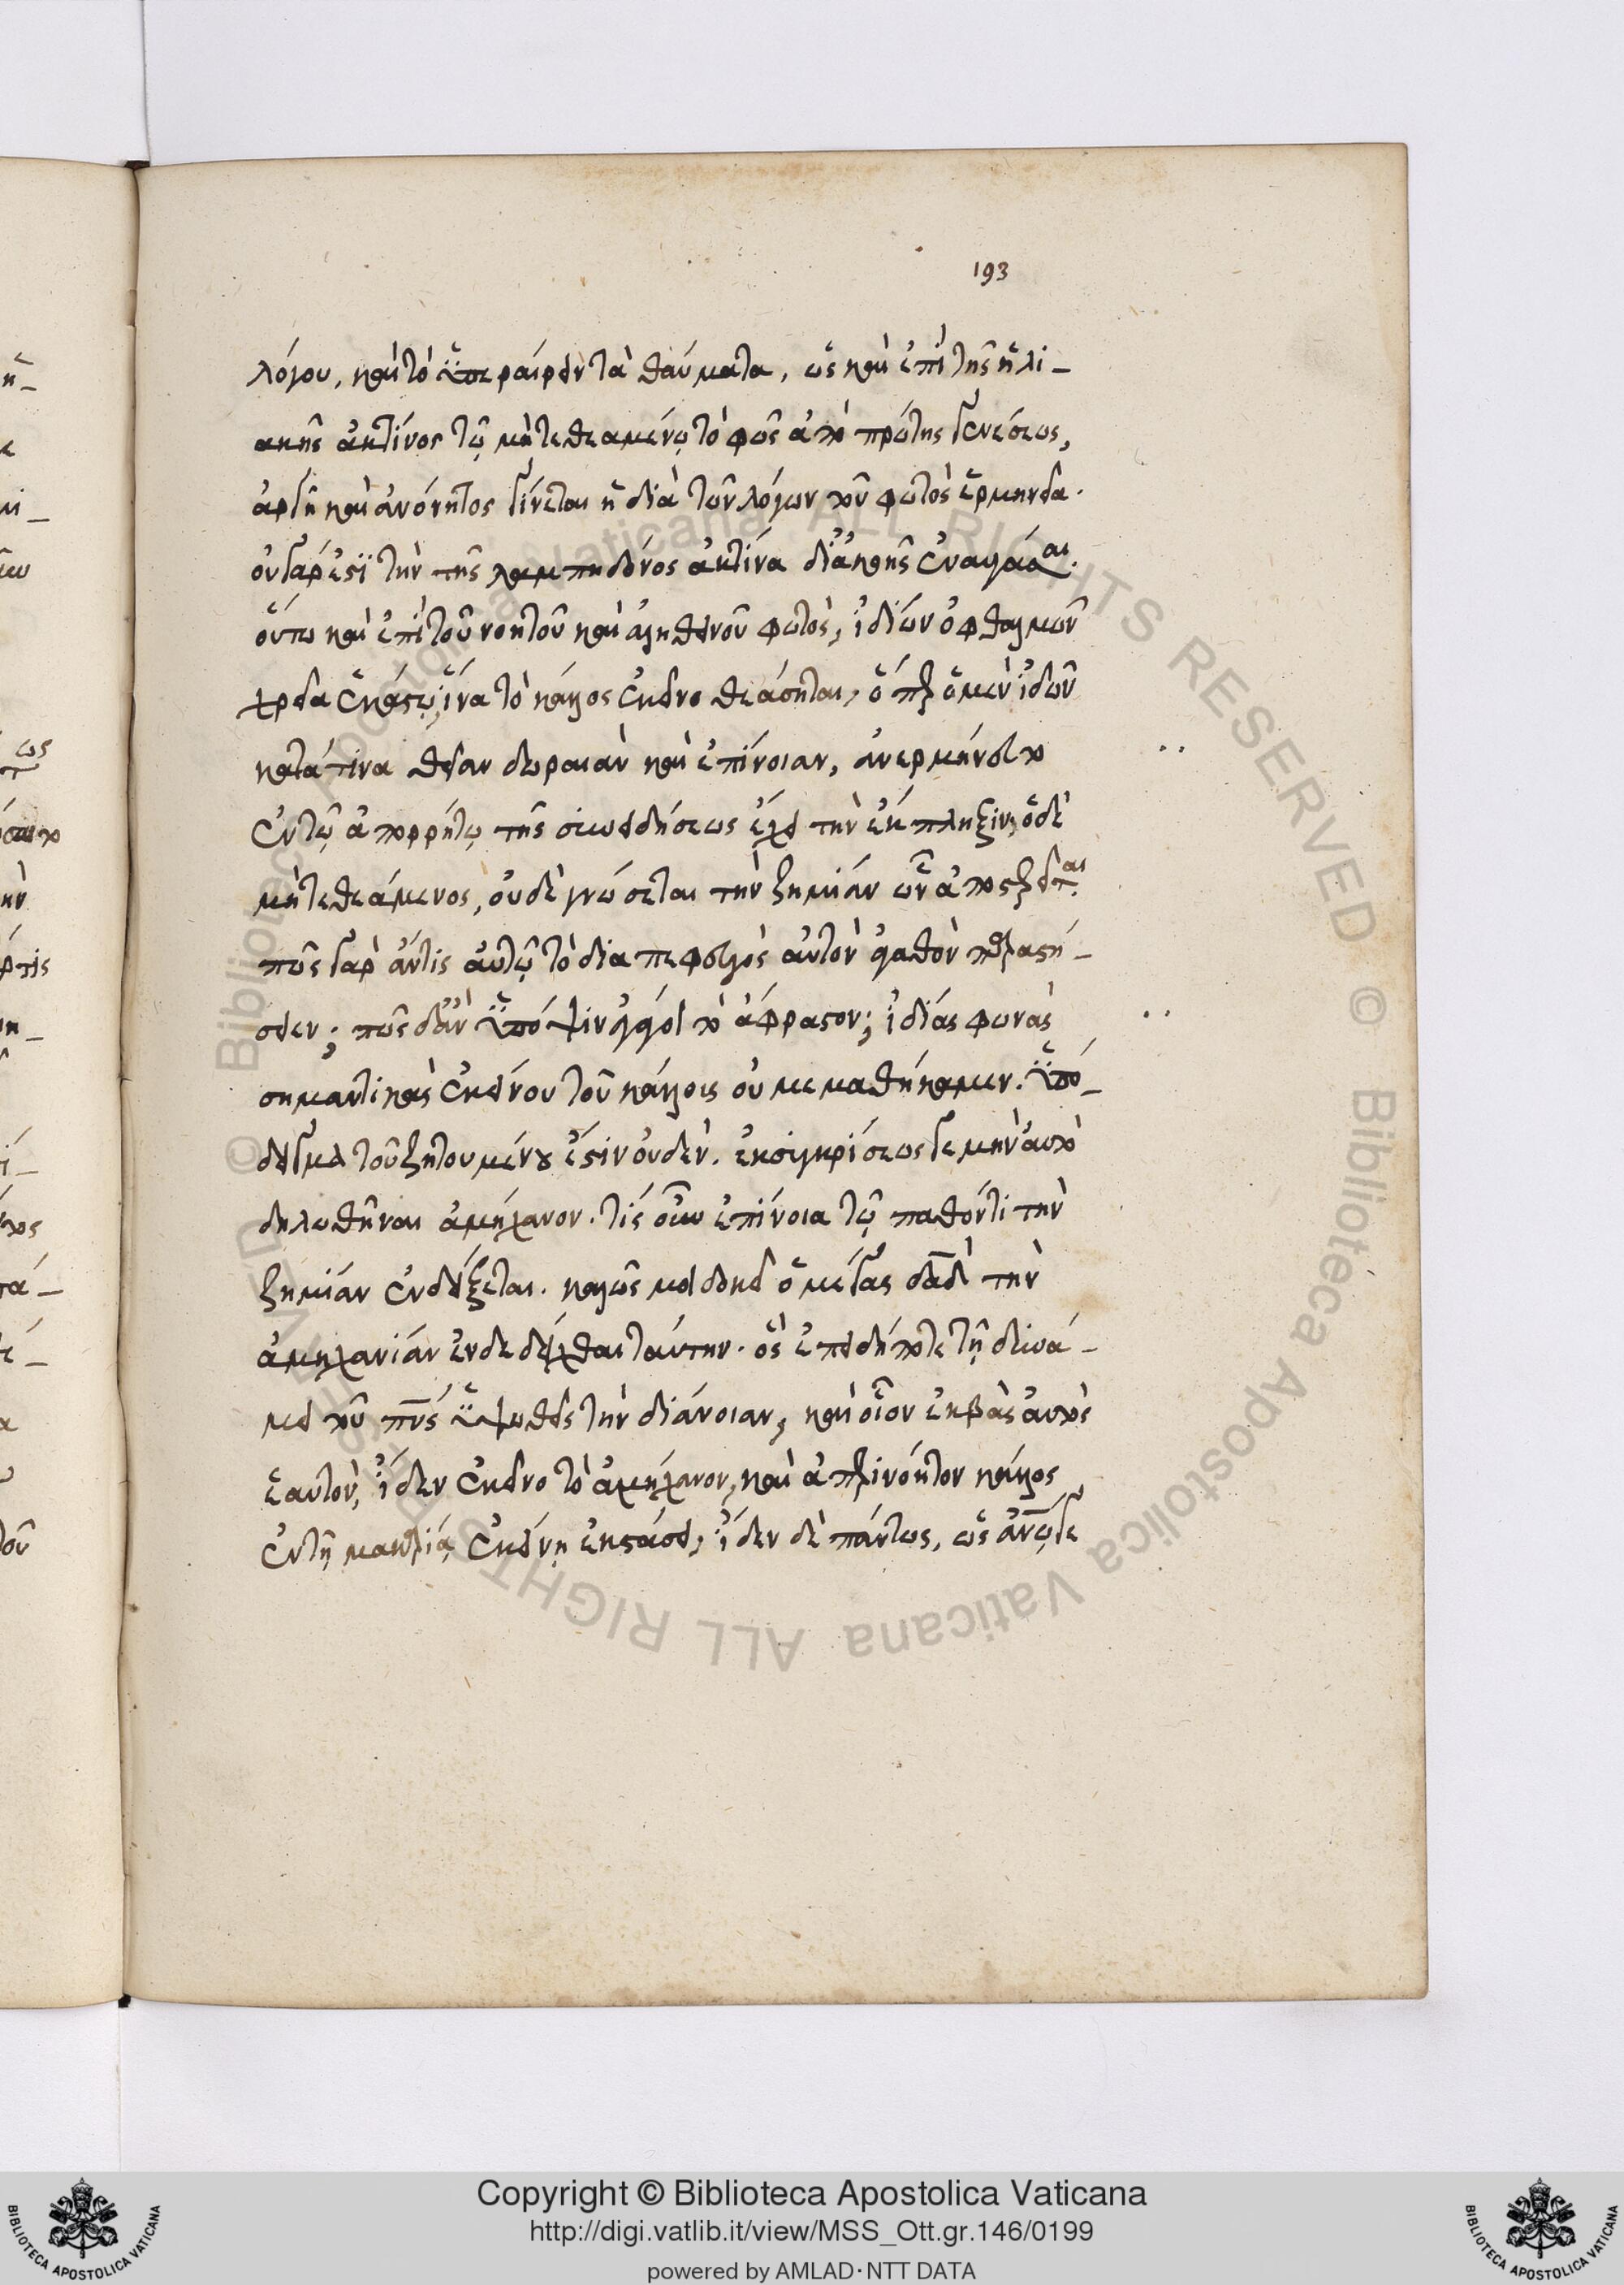 193
λόγου, καὶ τὸ ὑπεραίρειν τὰ θαύματα, ὡς καὶ ἐπὶ τῆς ἡλι-
ακῆς ἀκτίνος τῷ μὴ τεθεαμένῳ τὸ φῶς ἀπὸ πρώτης γενέσεως,
ἀργὴ καὶ ἀνόνητος γίνεται ἡ διὰ τῶν λόγων τοῦ φωτὸς ἑρμηνεία.
οὐ γάρ ἐστι τὴν τῆς λαμπηδόνος ἀκτίνα δι' ἀκοῆς ἐναυγάσαι.
οὕτω καὶ ἐπὶ τοῦ νοητοῦ καὶ ἀληθινοῦ φωτὸς, ἰδίων ὀφθαλμῶν
χρεία ἑκάστῳ, ἵνα τὸ κάλλος ἐκεῖνο θεάσηται, ὅπερ ὁ μὲν ἰδὼν
κατά τινα θείαν δωρεὰν καὶ ἐπίνοιαν, ἀνερμήνευτο
ἐν τῷ ἀπορρήτῳ τῆς συνειδήσεως ἔχει τὴν ἔκπληξιν, ὁ δὲ
μὴ τεθεάμενος, οὐδὲ γνώσεται τὴν ζημίαν ὧν ἀποστερεῖται.
πῶς γὰρ ἄν τις αὐτῷ τὸ διαπεφευγὸς αὐτὸν ἀγαθὸν παραστή-
σειεν; πῶς δ' ἂν ὑπ' ὄψιν ἀγάγοι τὸ ἄφραστον; ἰδίας φωνὰς
σημαντικὰς ἐκείνου τοῦ κάλλους οὐ μεμαθήκαμεν. ὑπό-
δειγμα τοῦ ζητουμένου ἔστιν οὐδὲν. ἐκ συγκρίσεως γε μὴν αὐτὸ
δηλωθῆναι ἀμήχανον. τίς οὖν ἐπίνοια τῷ παθόντι τὴν
ζημίαν ἐνδείξεται. καλῶς μοι δοκεῖ ὁ μέγας δαδ τὴν
ἀμηχανίαν ἐνδεδεῖχθαι ταύτην. ὃς ἐπειδήποτε τῇ δυνά-
μει τοῦ πνς ὑψωθεὶς τὴν διάνοιαν, καὶ οἷον ἐκβὰς αὐτὸς
ἑαυτὸν, ἴδεν ἐκεῖνο τὸ ἀμήχανον, καὶ ἀπερινόητον κάλλος
ἐν τῇ μακαρίᾳ ἐκείνῃ ἐκστάσει, ἴδεν δὲ πάντως, ὡς ἀνῳ γε